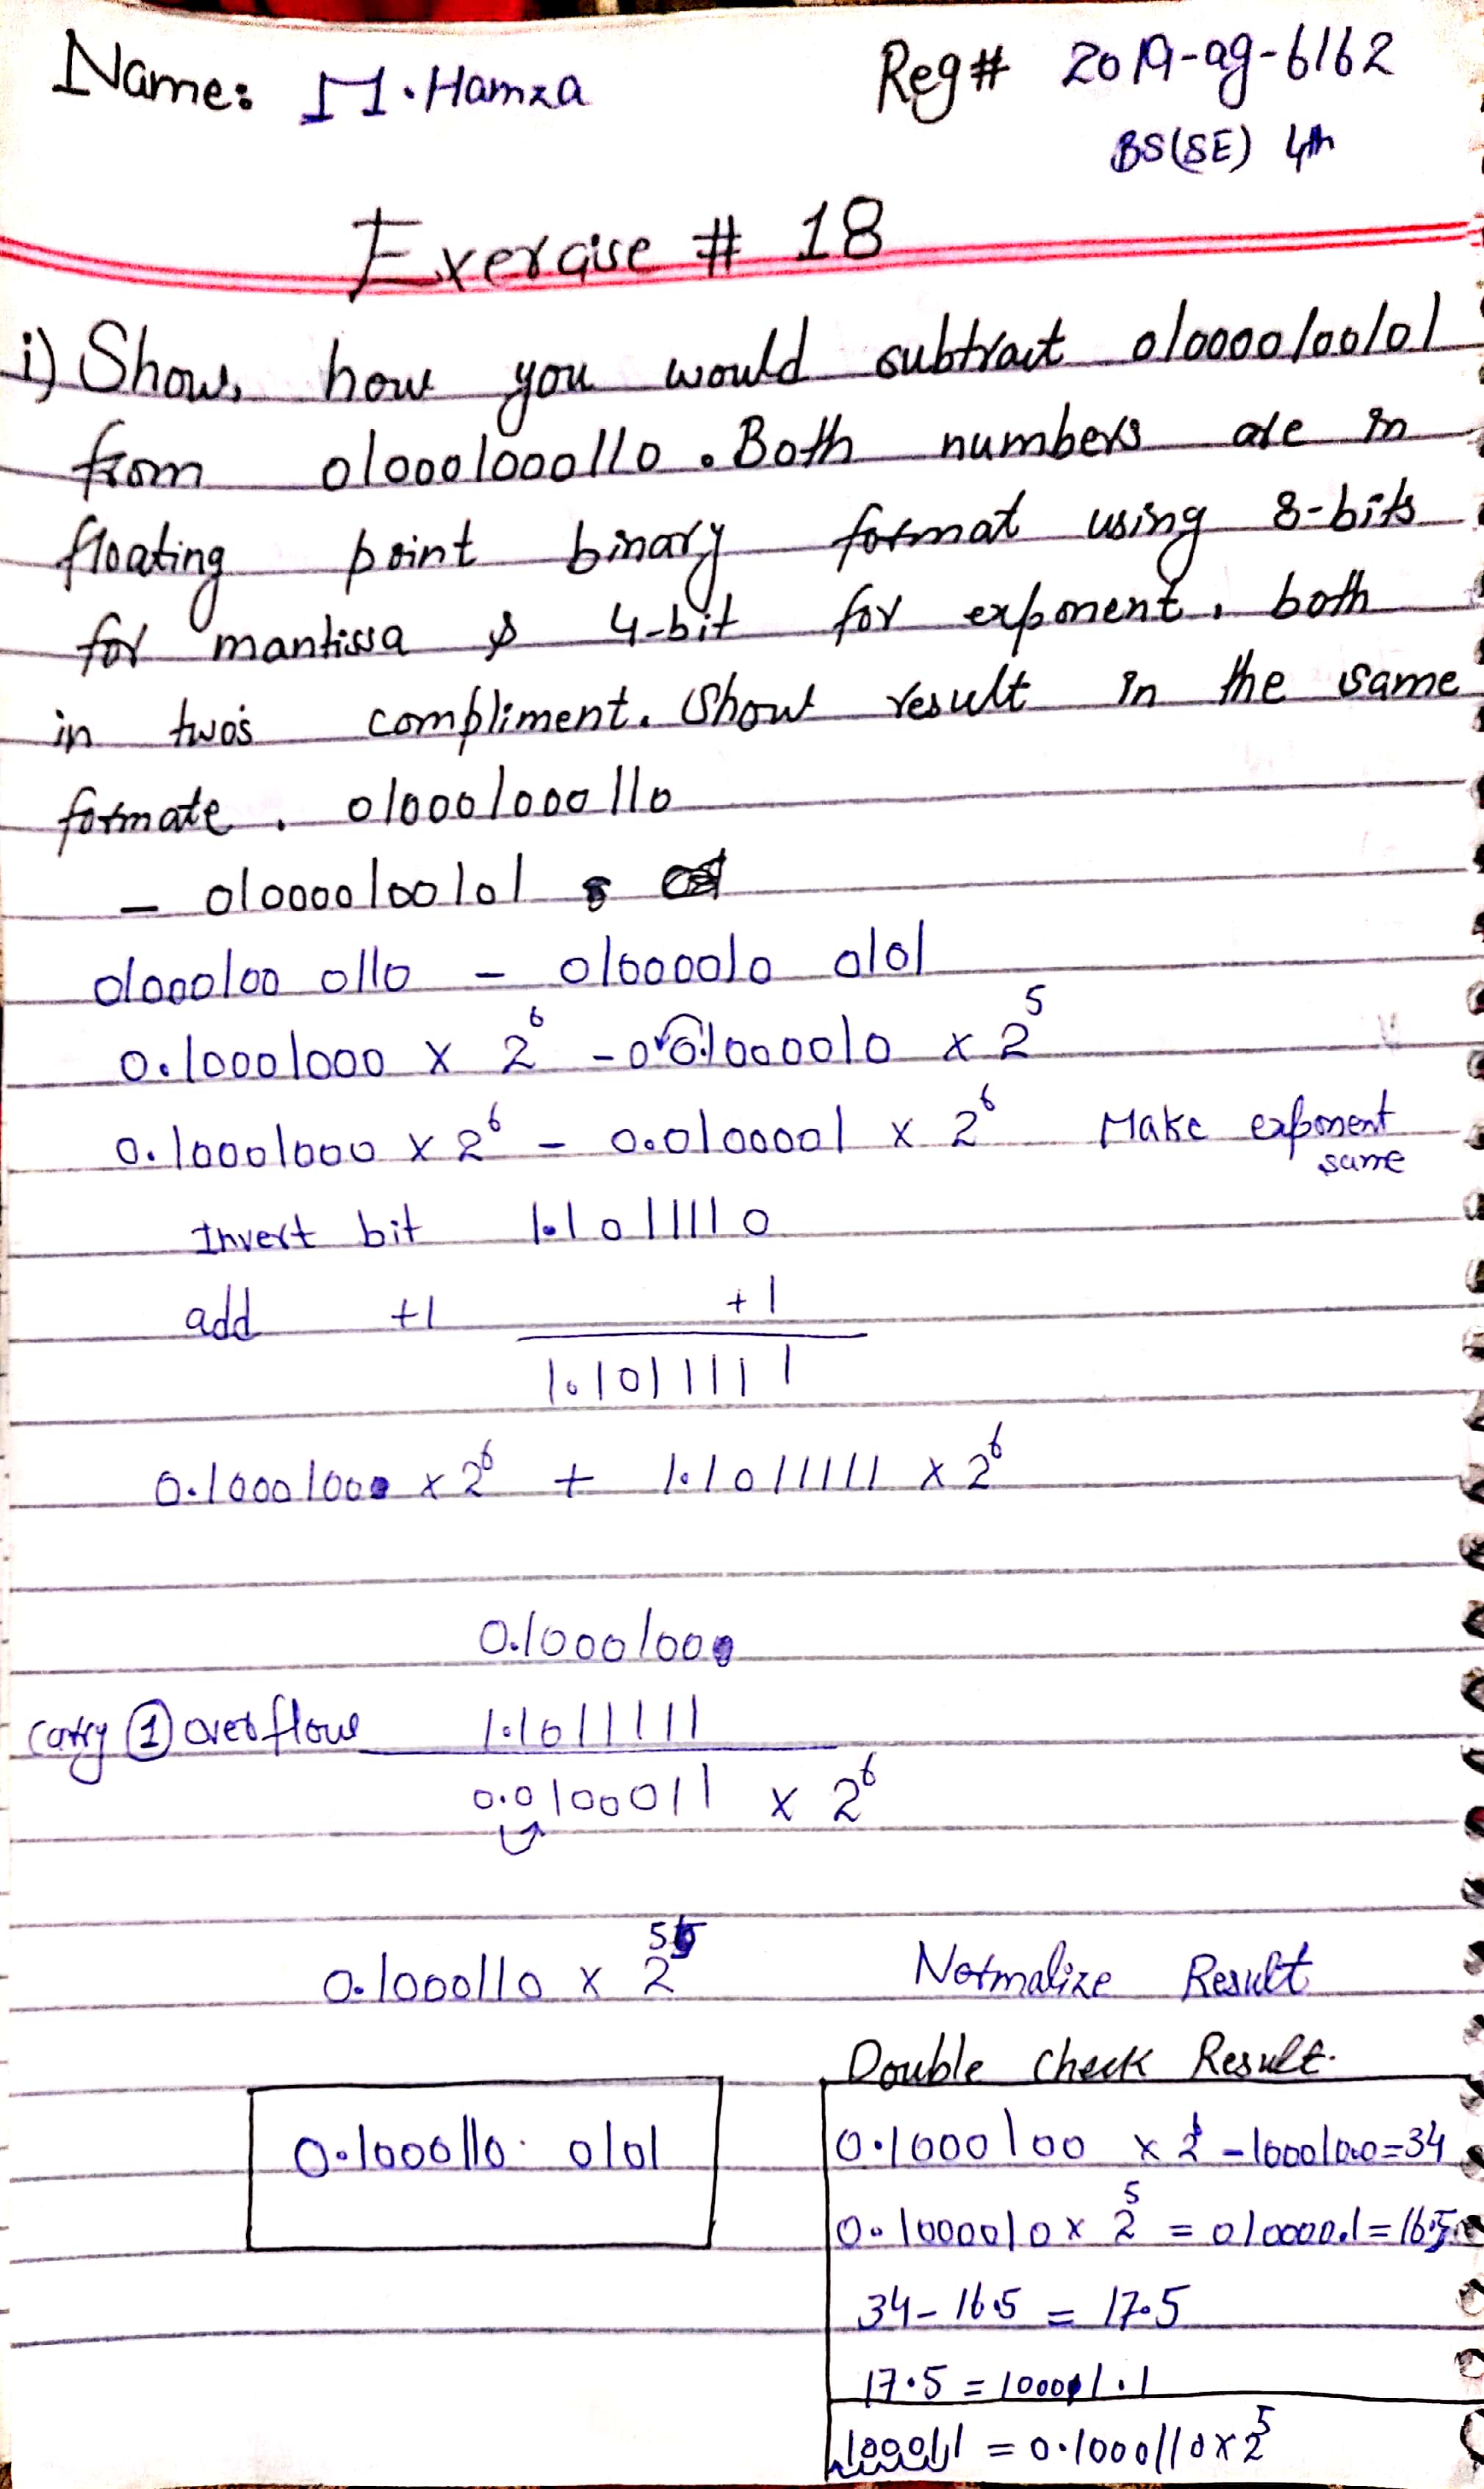 Name: M.Hamza Reg# 2019-ag-6162
BS(SE) 4th
Exercise # 18
i) Show, how you would subtract 010000100101
from 010001000110. Both numbers are in
floating point binary format using 8-bits
for mantissa & 4-bit for exponent, both
in two's compliment. Show result in the same
formate. 010001000110
- 010000100101
01000100 0110 - 01000010 0101
0.10001000 x 2^6 - 0.1000010 x 2^5
0.10001000 x 2^6 - 0.0100001 x 2^6 Make exponent
same
Invert bit 1.1011110
add +1 +1
1.1011111
0.1000100 x 2^6 + 1.1011111 x 2^6
0.1000100
Carry 1 overflow 1.1011111
0.0100011 x 2^6
0.1000110 x 2^5 Normalize Result
Double Check Result.
0.1000110 0101
0.1000100 x 2 - 1000100=34
0.1000010 x 2^5 = 010000.1=16.5
34-16.5 = 17.5
17.5 = 10001.1
= 0.1000110x2^5